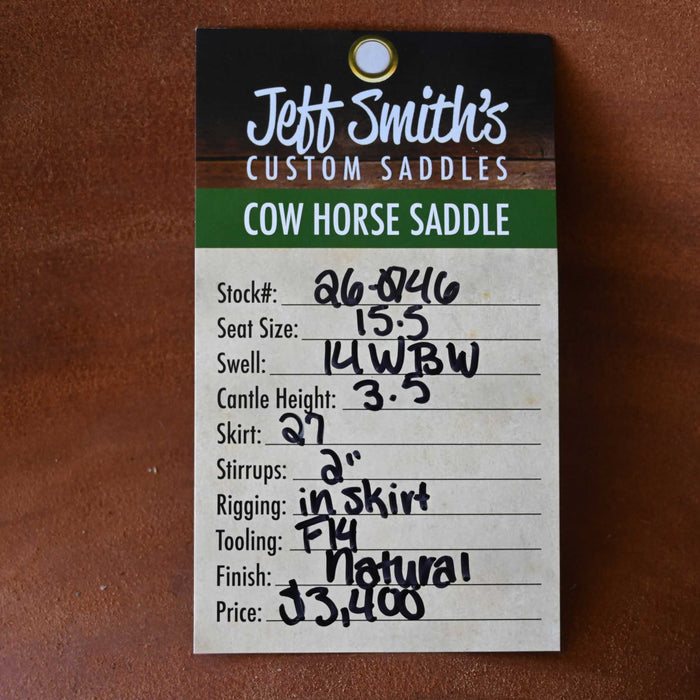 Jeff Smith's
CUSTOM SADDLES
COW HORSE SADDLE
Stock#: 26-0746
Seat Size: 15.5
Swell: 14 WBW
Cantle Height: 3.5
Skirt: 27
Stirrups: 2"
Rigging: in skirt
Tooling: F14
Finish: Natural
Price: $3,400